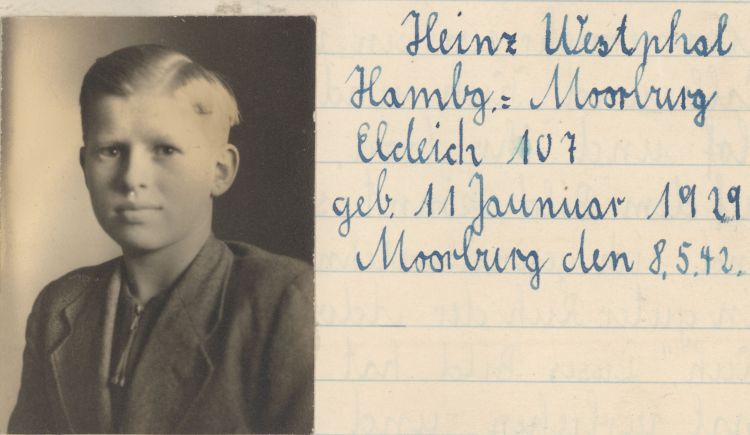 Heinz Westphal
Hambg.= Moorburg
Eldeich 107
geb. 11 Jaunuar 1929
Moorburg den 8.5.42.